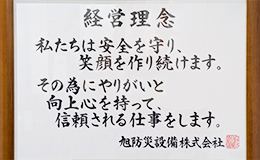 経営理念
私たちは安全を守り、
笑顔を作り続けます。
その為にやりがいと
向上心を持って、
信頼される仕事をします。
旭防災設備株式会社